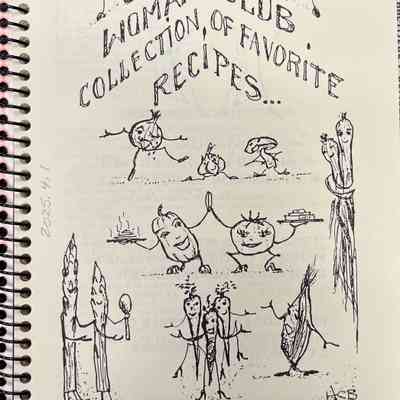 WOMAN'S CLUB
COLLECTION OF FAVORITE
RECIPES...
2025.4.1
HCB